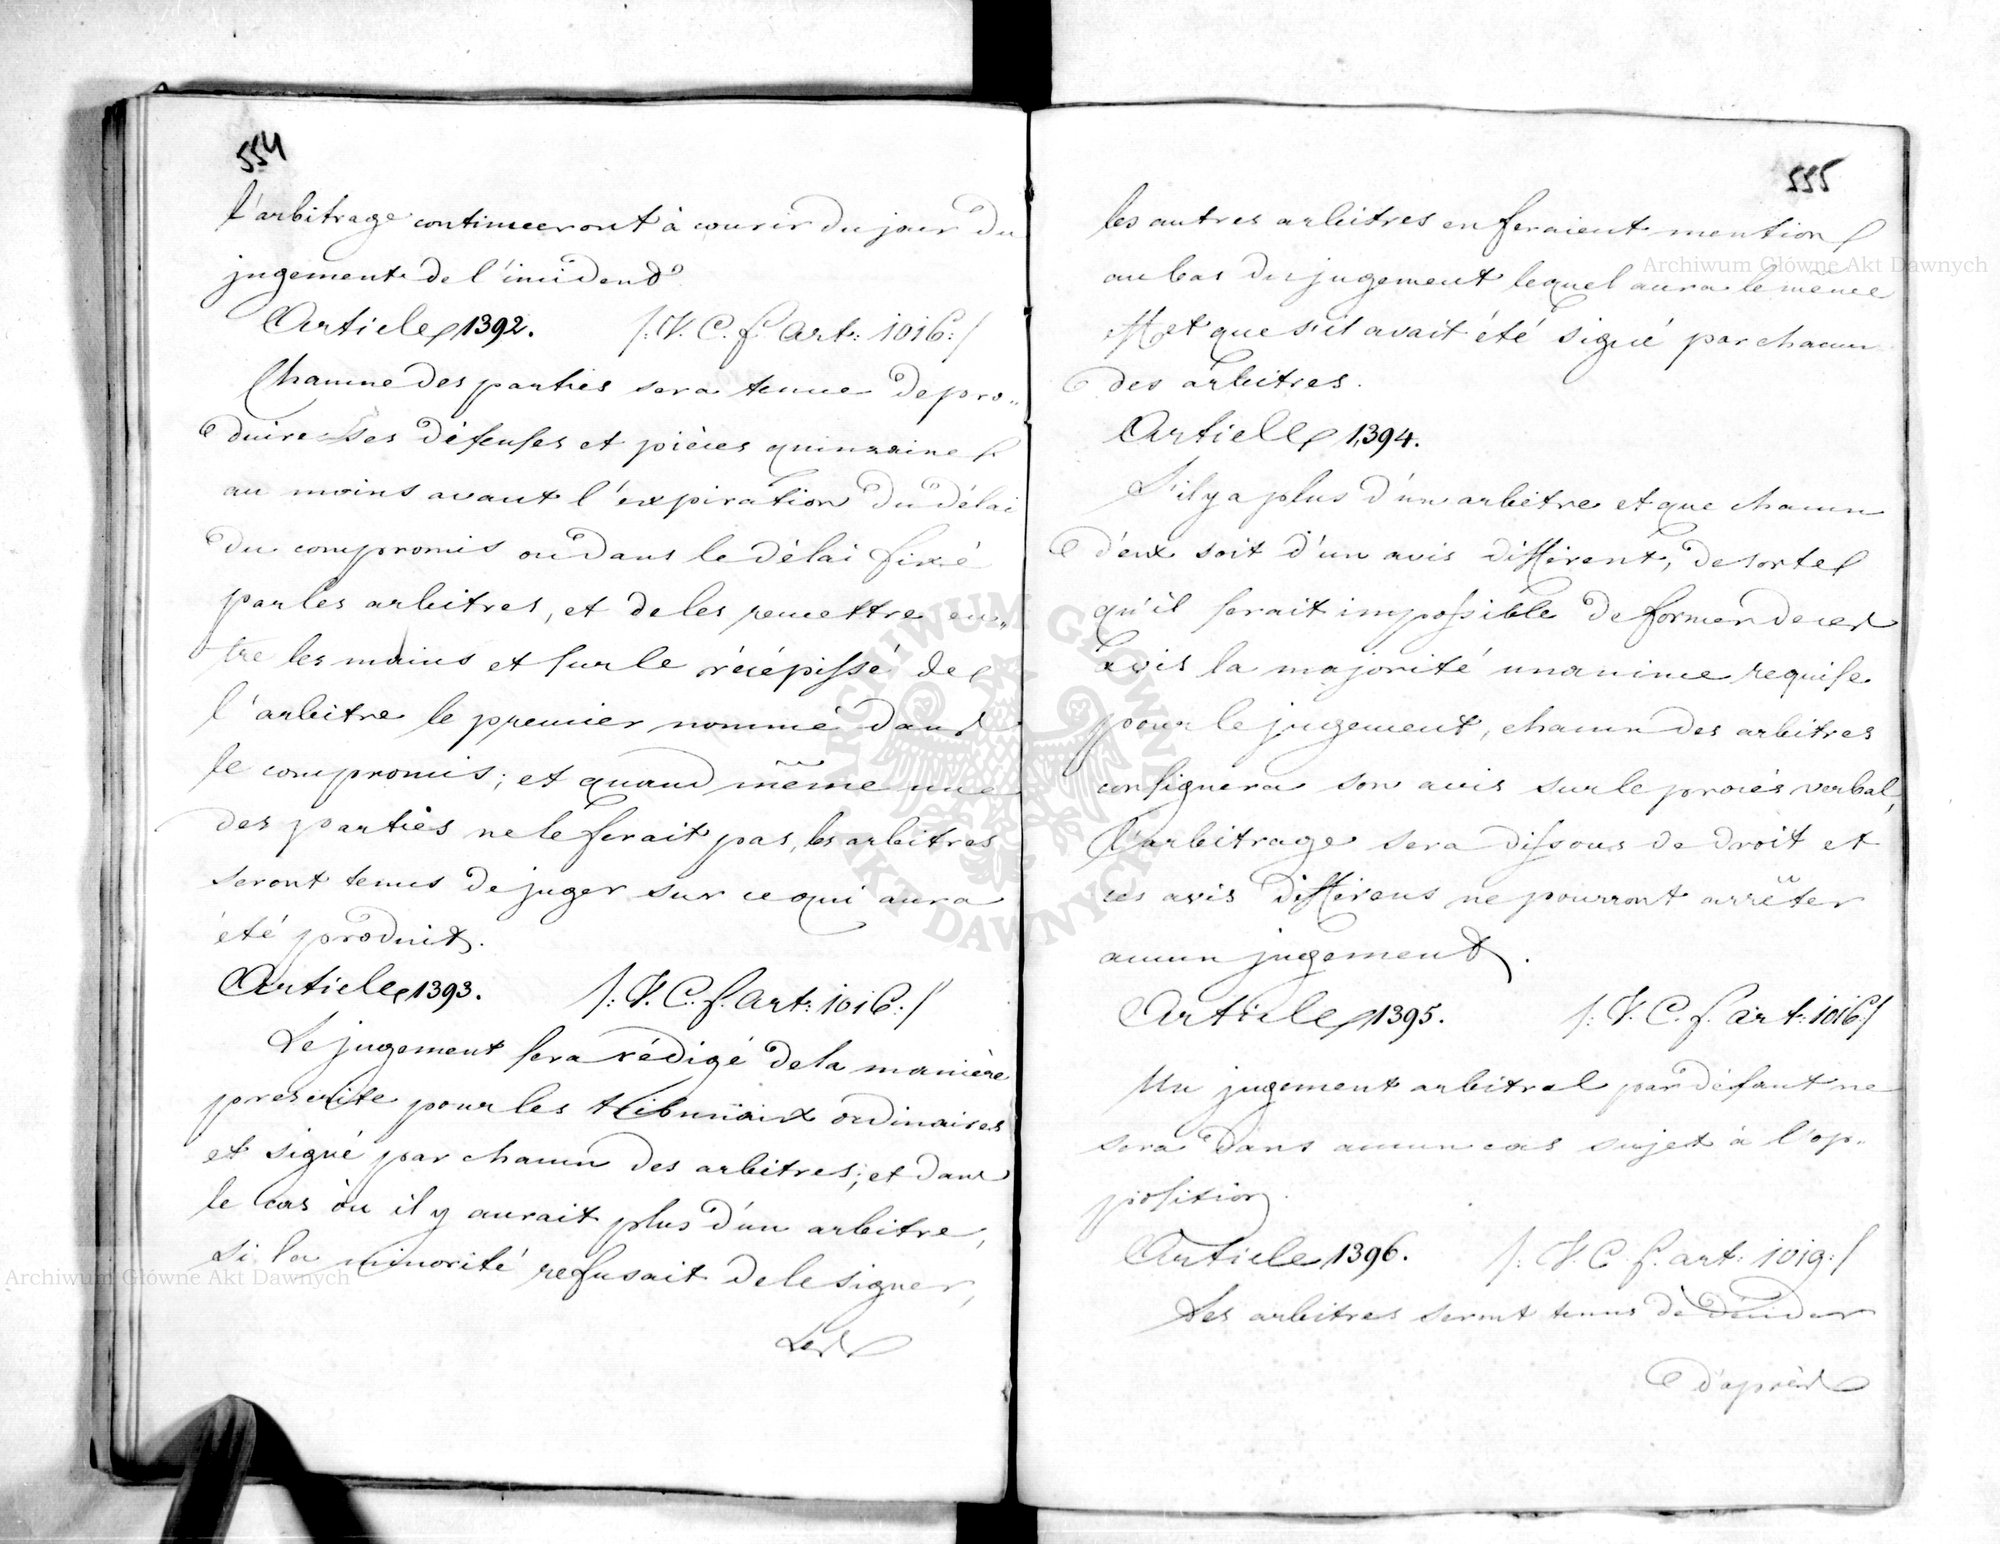 554
l'arbitrage continueront à courir du jour du
jugement de l'incident
Article 1392. /: V. C. f. Art: 1016:/
Chacune des parties sera tenue de pro„
duire ses défenses et pièces quinzaine
au moins avant l'expiration du délai
du compromis ou dans le délai fixé
par les arbitres, et de les remettre en„
tre les mains et sur le récépissé de
l'arbitre le premier nommé dans
le compromis; et quand même une
des parties ne le ferait pas, les arbitres
seront tenus de juger sur ce qui aura
été produit.
Article 1393. /: V. C. f. Art: 1016:/
Le jugement sera rédigé de la manière
prescrite pour les tribunaux ordinaires
et signé par chacun des arbitres; et dans
le cas òu il y aurait plus d'un arbitre,
si la minorité refusait de le signer,
Les
555
les autres arbitres en feraient mention
au bas du jugement lequel aura le même
effet que s'il avait été signé par chacun
des arbitres.
Article 1394.
S'il y a plus d'un arbitre et que chacun
d'eux soit d'un avis différent, de sorte
qu'il serait impossible de former de ces
avis la majorité unanime requise
pour le jugement, chacun des arbitres
consignera son avis sur le procès verbal,
l'arbitrage sera dissous de droit et
ces avis différens ne pourront arrêter
aucun jugement.
Article 1395. /: V. C. f. art: 1016:/
Un jugement arbitral par défaut ne
sera dans aucun cas sujet à l'op„
position.
Article 1396. /: V. C. f. art: 1019:/
Les arbitres seront tenus de décider
d'après
Archiwum Główne Akt Dawnych
Archiwum Główne Akt Dawnych
ARCHIWUM GŁÓWNE AKT DAWNYCH